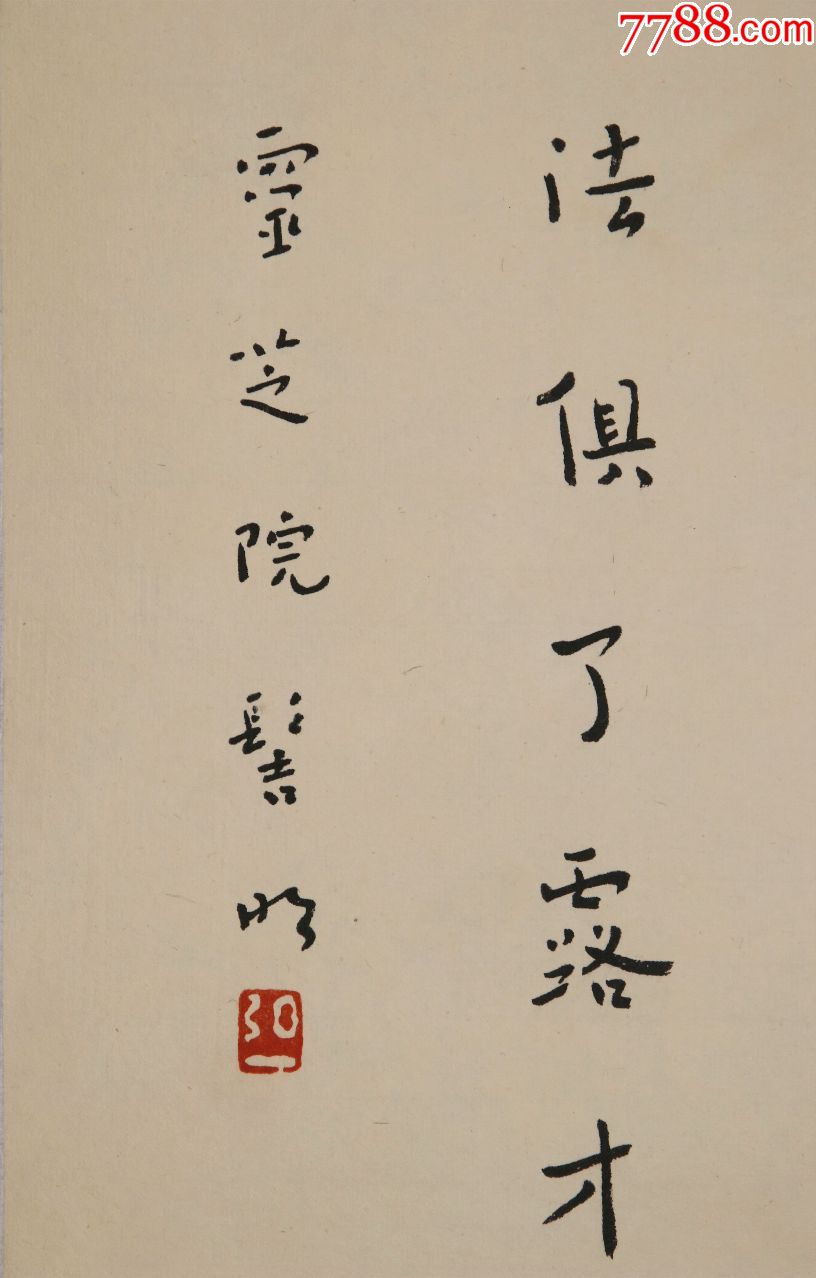 7788.com
法俱了露才
靈芝院髻明
弘一